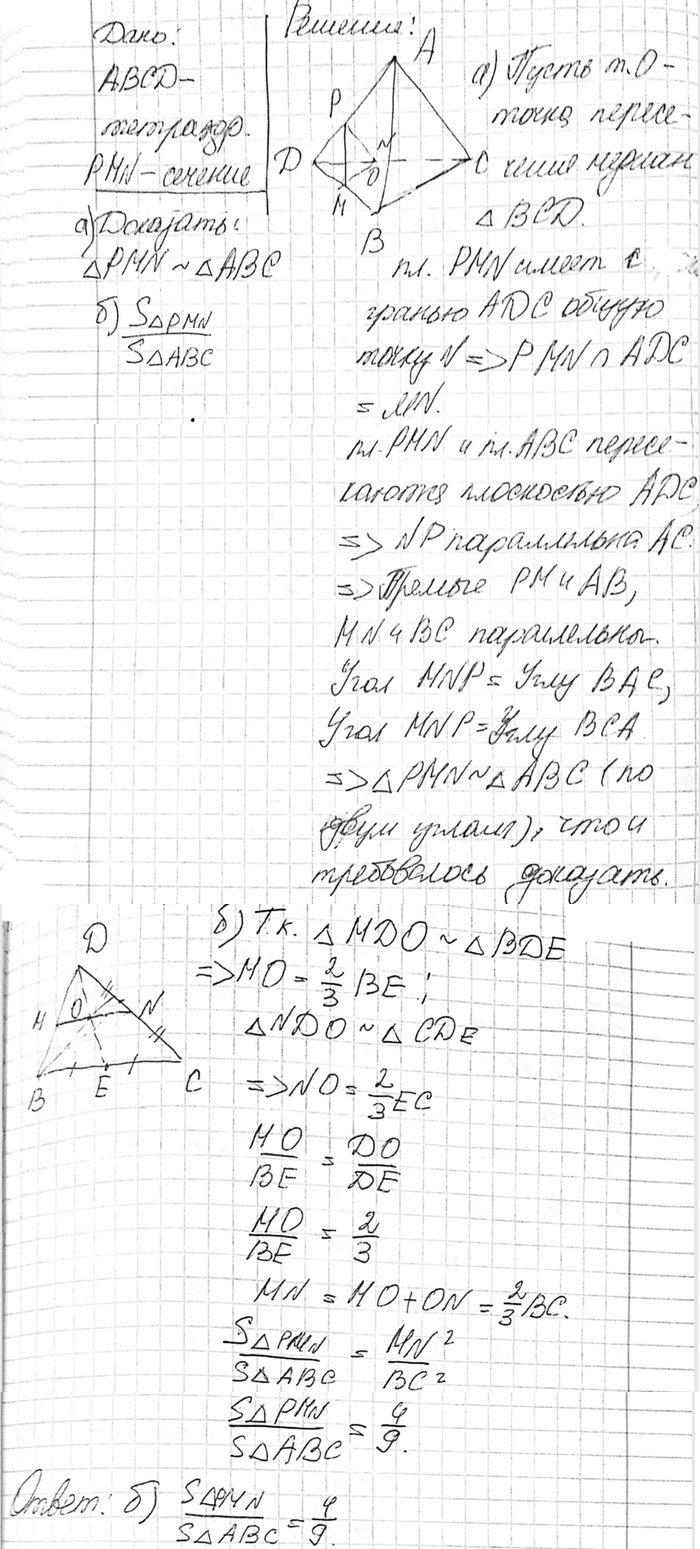 Дано:
ABCD-
тетраэдр.
PMN-сечение
а) Доказать:
△PMN ~ △ABC
б) S△PMN / S△ABC
Решение:
A
P
N
D
O
C
M
B
а) Пусть т.О-
точка пересе-
чения медиан
△BCD.
пл. PMN имеет с
гранью ADC общую
точку N => PMN ∩ ADC
= PN.
пл. PMN и пл. ABC пересе-
каются плоскостью ADC
=> NP параллельна AC.
=> Прямые PM и AB,
MN и BC параллельны.
Угол MNP = Углу BAC,
Угол MNP = Углу BCA
=> △PMN ~ △ABC (по
двум углам), что и
требовалось доказать.
D
M
O
N
B
E
C
б) Т.к. △MDO ~ △BDE
=> MO = 2/3 BE ;
△NDO ~ △CDE
=> NO = 2/3 EC
MO / BE = DO / DE
MO / BE = 2 / 3
MN = MO + ON = 2/3 BC.
S△PMN / S△ABC = MN² / BC²
S△PMN / S△ABC = 4/9.
Ответ: б) S△PMN / S△ABC = 4/9.